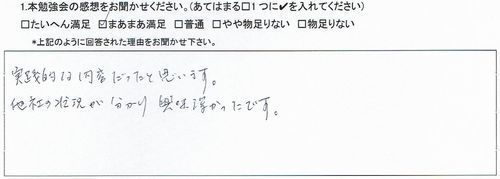 1.本勉強会の感想をお聞かせください。(あてはまる□1つに✔を入れてください)
□たいへん満足 ☑まあまあ満足 □普通 □やや物足りない □物足りない
*上記のように回答された理由をお聞かせ下さい。
実践的な内容だったと思います。
他社の状況が分かり興味深かったです。